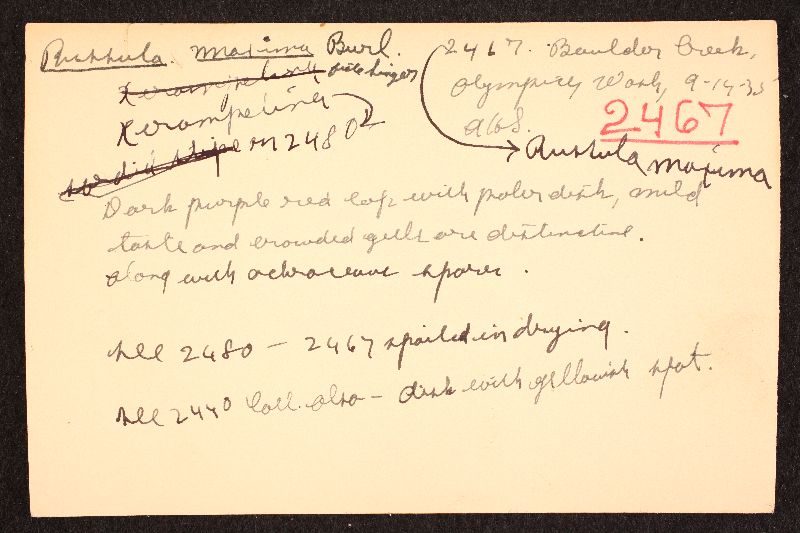 Russula maxima Burl.
Xerampelina
Xerampelina
sordid stipe in 2480?
2467. Boulder Creek,
Olympics, Wash, 9-14-35
AHS.
2467
Russula maxima
Dark purple red cap with paler disk, mild
taste and crowded gills are distinctive.
along with ochraceous spores.
see 2480 — 2467 spoiled in drying.
see 2440 Coll. also — disk with yellowish spot.